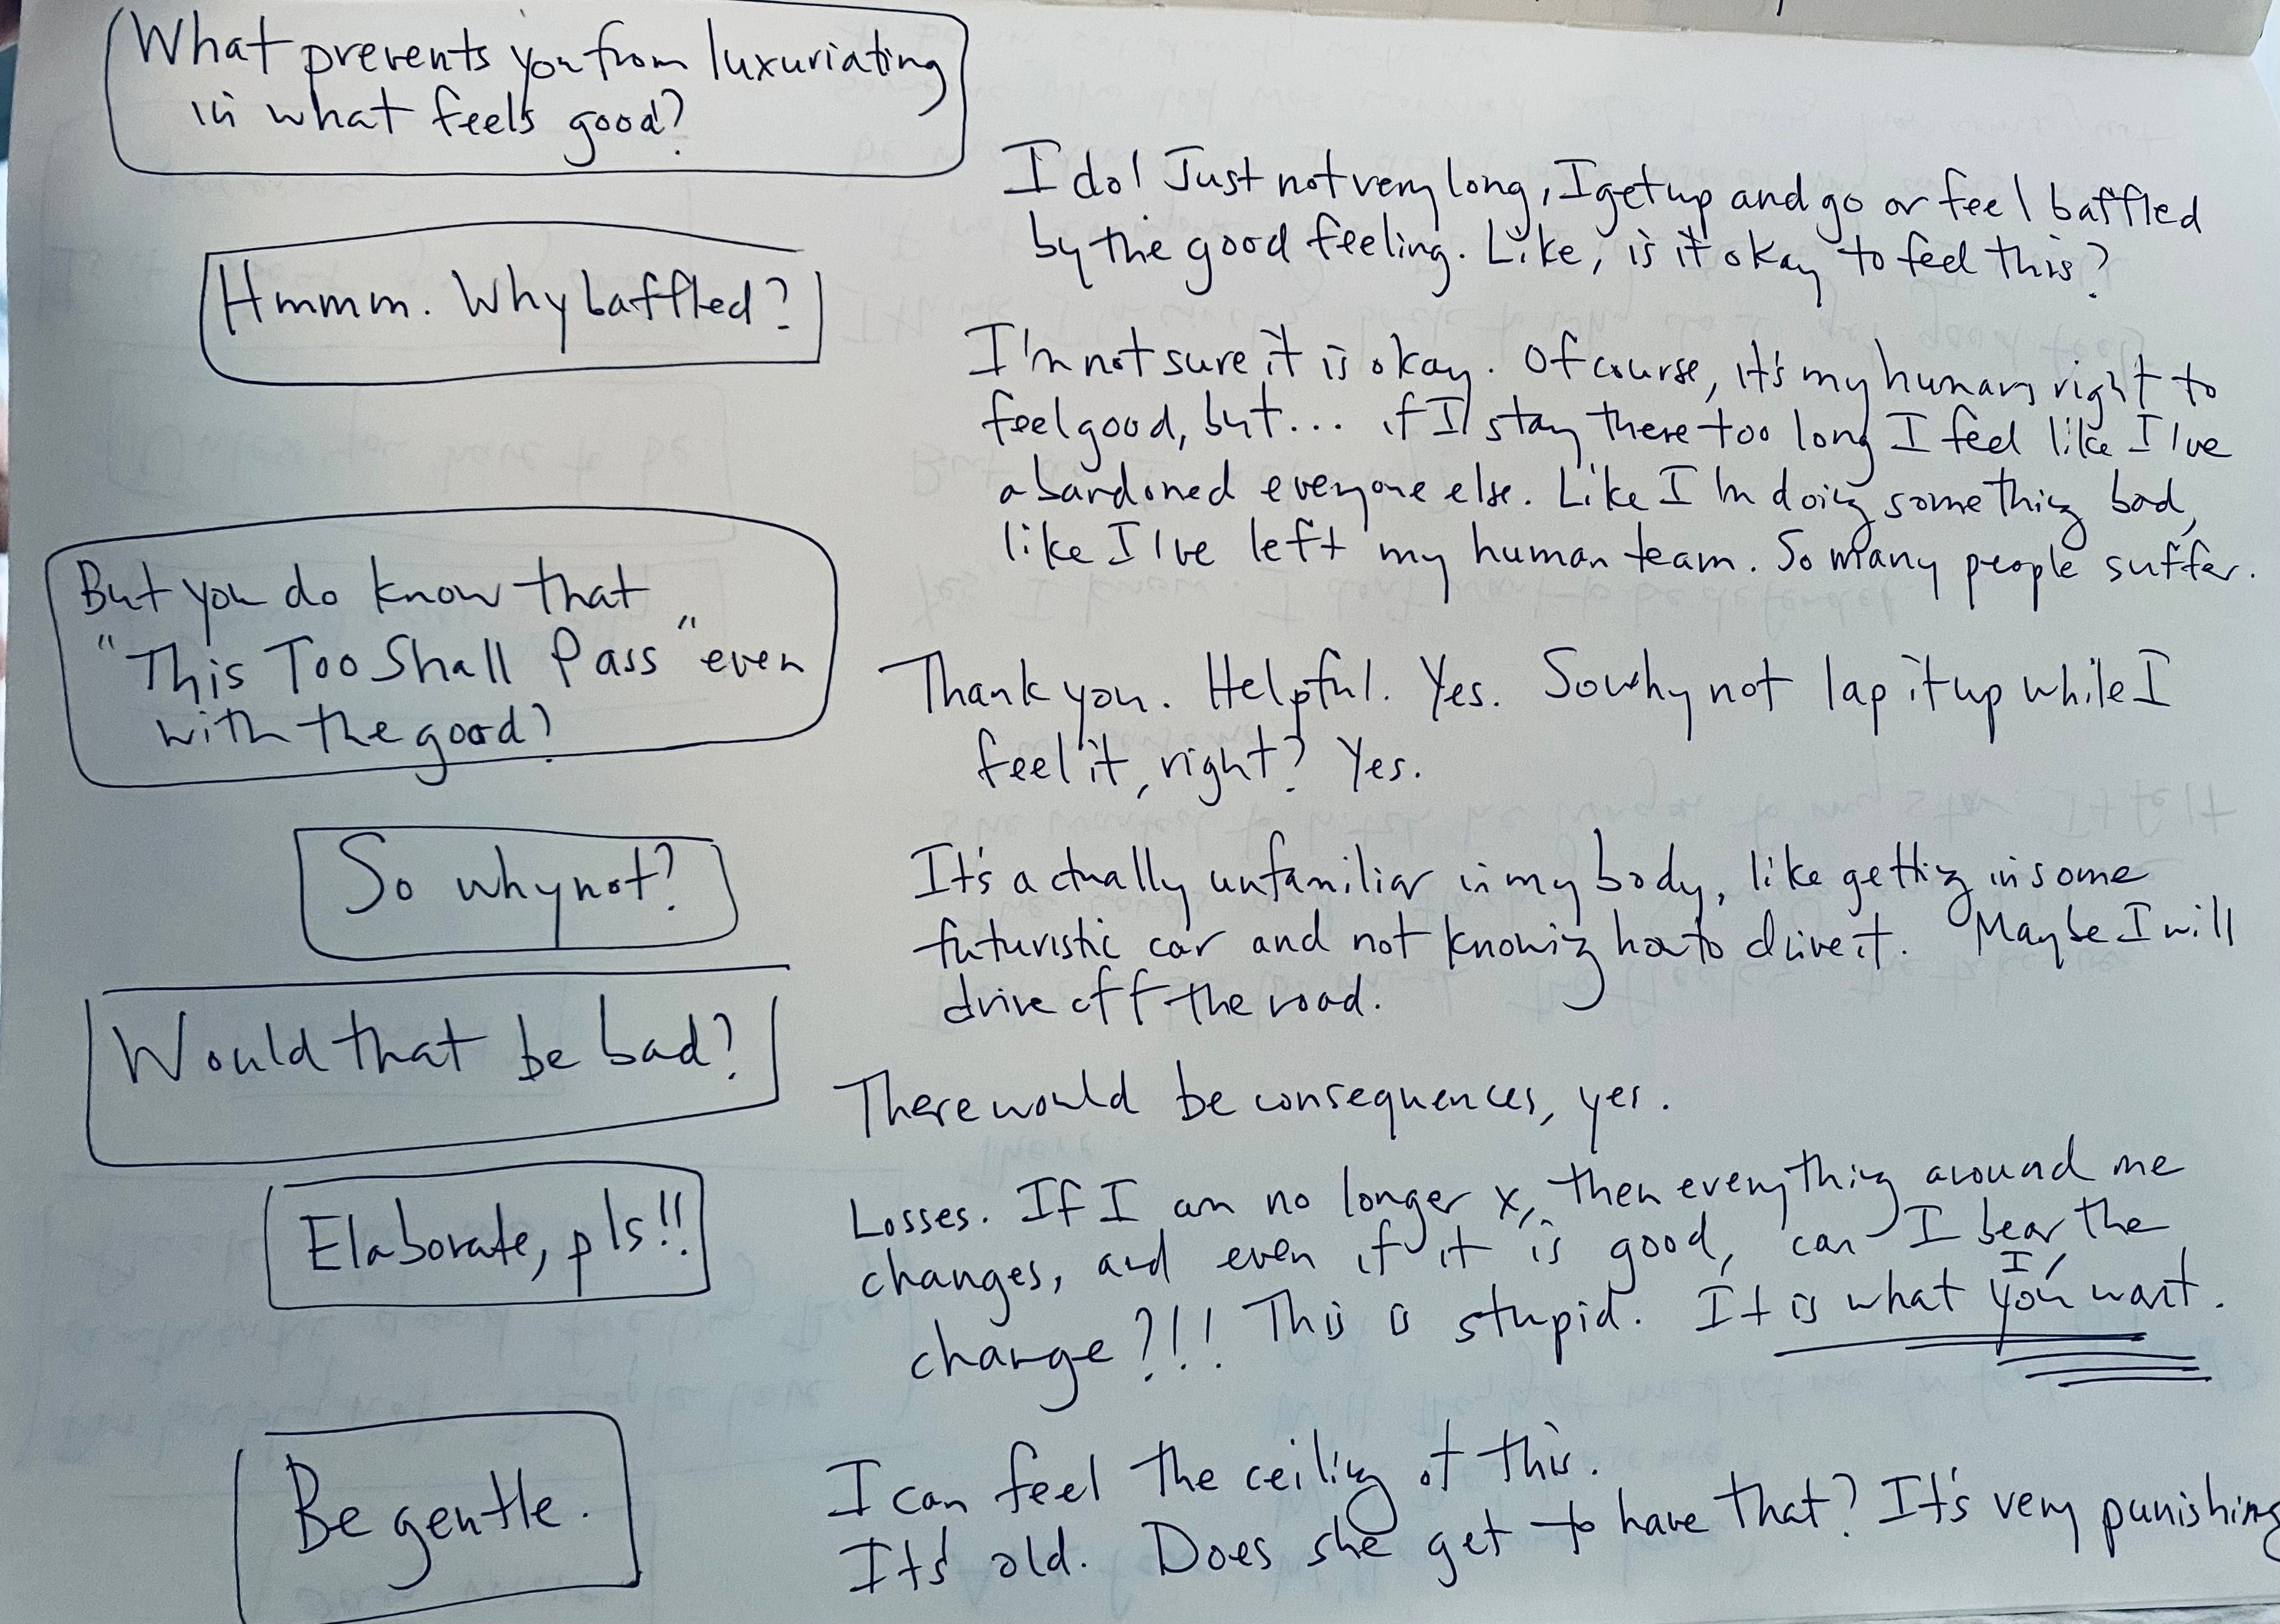 What prevents you from luxuriating
in what feels good?
I do! Just not very long, I get up and go or feel baffled
by the good feeling. Like, is it okay to feel this?
Hmmm. Why baffled?
I'm not sure it is okay. Of course, it's my human right to
feel good, but... if I stay there too long I feel like I've
abandoned everyone else. Like I'm doing something bad,
like I've left my human team. So many people suffer.
But you do know that
"This Too Shall Pass" even
with the good?
Thank you. Helpful. Yes. So why not lap it up while I
feel it, right? Yes.
So why not?
It's actually unfamiliar in my body, like getting in some
futuristic car and not knowing how to drive it. Maybe I will
drive off the road.
Would that be bad?
There would be consequences, yes.
Elaborate, pls!!
Losses. If I am no longer x, then everything around me
changes, and even if it is good, can I bear the
change?!!! This is stupid. It is what you want.
I
Be gentle.
I can feel the ceiling of this.
It's old. Does she get to have that? It's very punishing